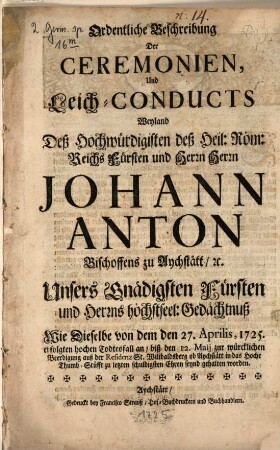 n: 14.
2 Germ. sp.
16 m
Ordentliche Beschreibung
Der
CEREMONIEN,
Und
Leich-CONDUCTS
Weyland
Deß Hochwürdigisten deß Heil: Röm:
Reichs Fürsten und Herrn Herrn
JOHANN
ANTON
Bischoffens zu Aychstätt/ ꝛc.
Unsers Gnädigsten Fürsten
und Herrns höchstseel: Gedächtnuß
Wie Dieselbe von dem den 27. Aprilis, 1725.
erfolgten hochen Todtesfall an/ biß den 12. Maij zur würcklichen
Beerdigung aus der Residenz St. Willibaldsberg ob Aychstätt in das Hoche
Thumb-Stifft zu letzten schuldigsten Ehren seynd gehalten worden.
Aychstätt/
Gedruckt bey Francisco Strauß/ Hof-Buchdruckern und Buchhandlern.
1725.